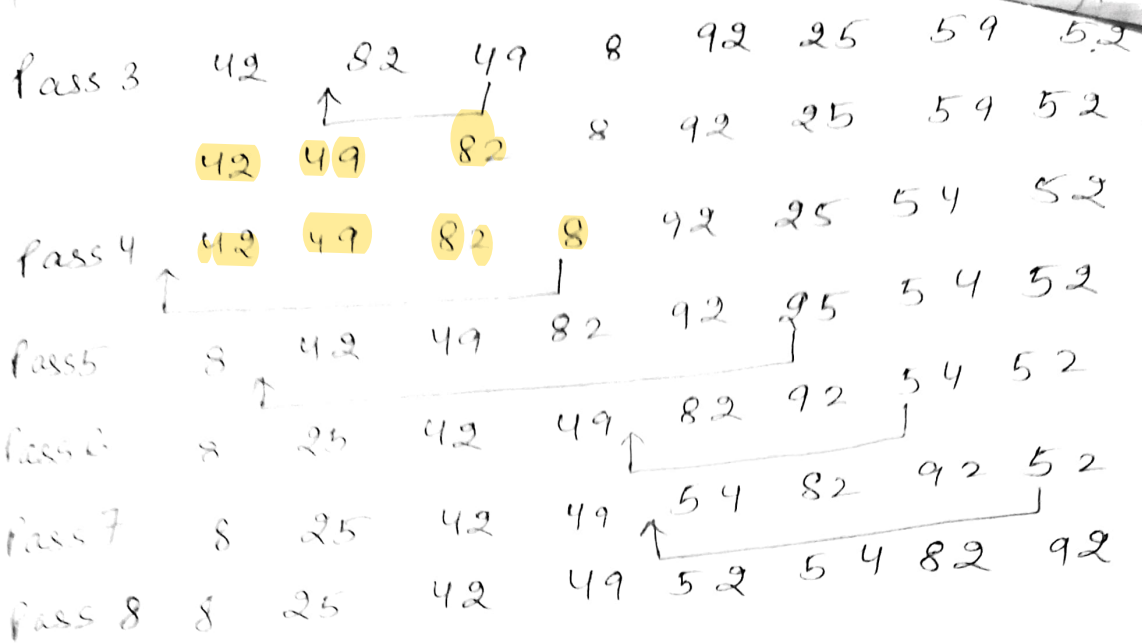 Pass 3 42 82 49 8 92 25 59 52
42 49 82 8 92 25 59 52
Pass 4 42 49 82 8 92 25 54 52
Pass 5 8 42 49 82 92 25 54 52
Pass 6 8 25 42 49 82 92 54 52
Pass 7 8 25 42 49 54 82 92 52
Pass 8 8 25 42 49 52 54 82 92